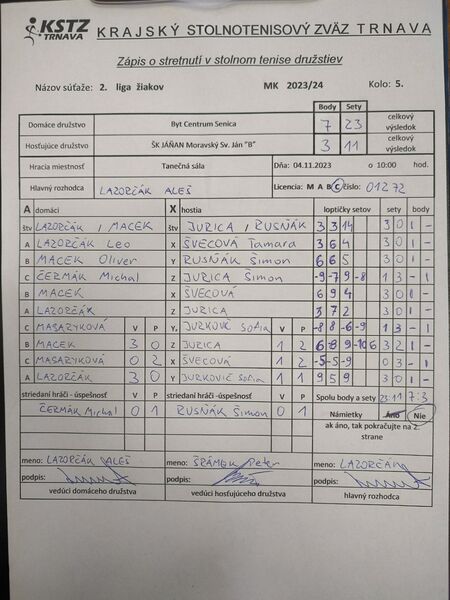 KSTZ TRNAVA KRAJSKÝ STOLNOTENISOVÝ ZVÄZ TRNAVA
Zápis o stretnutí v stolnom tenise družstiev
Názov súťaže: 2. liga žiakov MK 2023/24 Kolo: 5.
Body Sety
Domáce družstvo Byt Centrum Senica 7 23 celkový výsledok
Hosťujúce družstvo ŠK JÁŇAN Moravský Sv. Ján "B" 3 11 celkový výsledok
Hracia miestnosť Tanečná sála Dňa: 04.11.2023 o 10:00 hod.
Hlavný rozhodca LAZORČÁK ALEŠ Licencia: M A B C číslo: 01272
A domáci X hostia loptičky setov sety body
štv LAZORČÁK / MACEK štv JURICA / RUSŇÁK 3 3 14 3 0 1 -
A LAZORČÁK Leo X ŠVECOVÁ Tamara 3 6 4 3 0 1 -
B MACEK Oliver Y RUSŇÁK Šimon 6 6 5 3 0 1 -
C ČERMÁK Michal Z JURICA Šimon -9 -7 9 -8 1 3 - 1
B MACEK X ŠVECOVÁ 6 9 4 3 0 1 -
A LAZORČÁK Z JURICA 3 7 2 3 0 1 -
C MASARYKOVÁ V P Y, JURKOVIČ Sofia V P -8 8 -6 -9 1 3 - 1
B MACEK 3 0 Z JURICA 1 2 3 2 1 -
C MASARYKOVÁ 0 2 X ŠVECOVÁ 1 2 -5 -5 -9 0 3 - 1
A LAZORČÁK 3 0 Y JURKOVIČ Sofia 1 1 9 5 9 3 1 -
striedaní hráči - úspešnosť striedaní hráči - úspešnosť Spolu body a sety 23:11 7:3
ČERMÁK Michal 0 1 RUSŇÁK Šimon 0 1 Námietky Áno Nie
ak áno, tak pokračujte na 2. strane
meno: LAZORČÁK ALEŠ meno: ŠRÁMEK Peter meno: LAZORČÁK
podpis: podpis: podpis:
vedúci domáceho družstva vedúci hosťujúceho družstva hlavný rozhodca